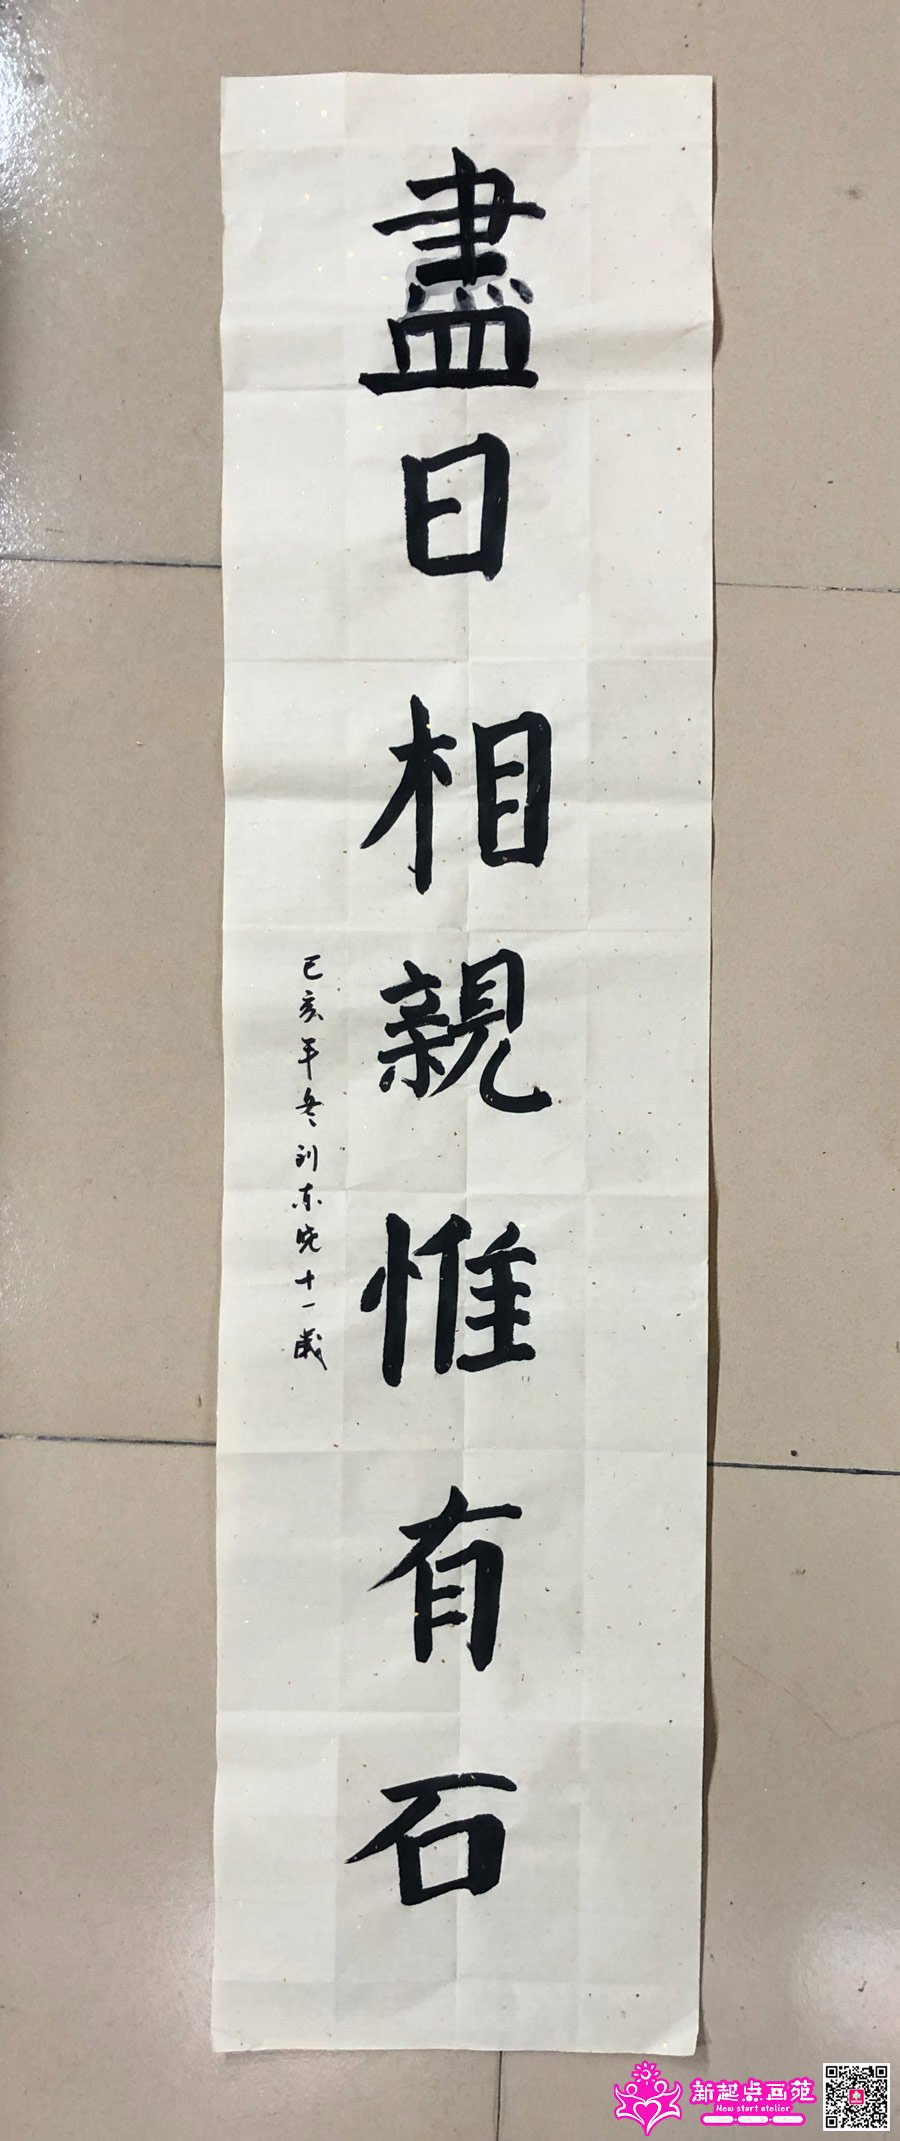 盡日相親惟有石
己亥年冬刘东晓十一歲
新起点画苑
New start atelier